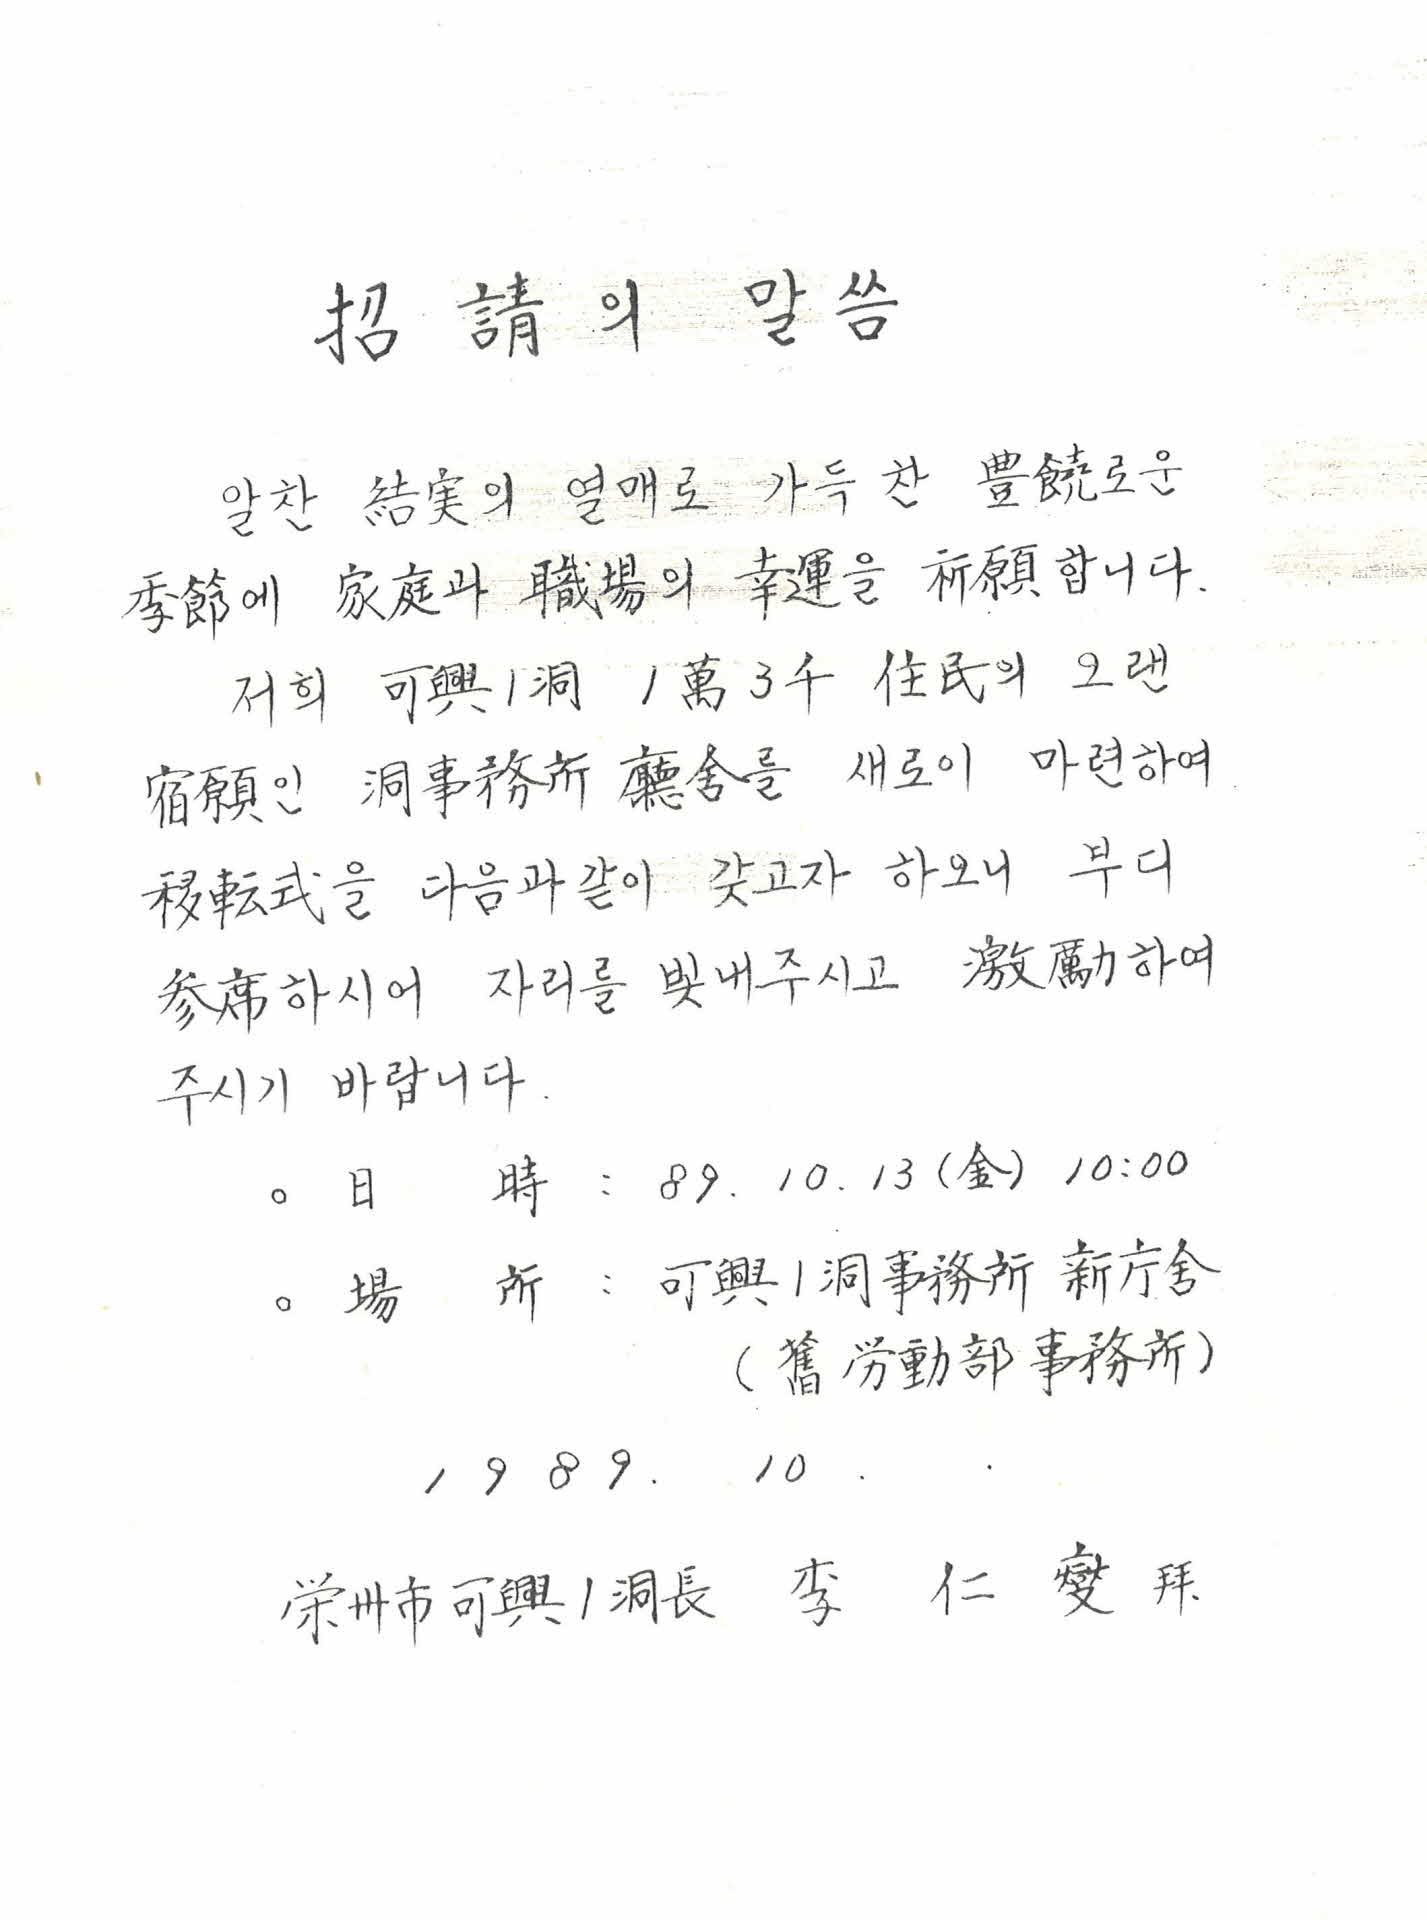 招請의 말씀
알찬 結実의 열매로 가득찬 豊饒로운
季節에 家庭과 職場의 幸運을 祈願합니다.
저희 可興1洞 1萬3千 住民의 오랜
宿願인 洞事務所 廳舍를 새로이 마련하여
移転式을 다음과같이 갖고자 하오니 부디
参席하시어 자리를 빛내주시고 激勵하여
주시기 바랍니다.
○ 日 時 : 89. 10. 13(金) 10:00
○ 場 所 : 可興1洞事務所 新庁舍
(舊 労動部 事務所)
1989. 10. .
栄州市可興1洞長 李 仁 燮 拜